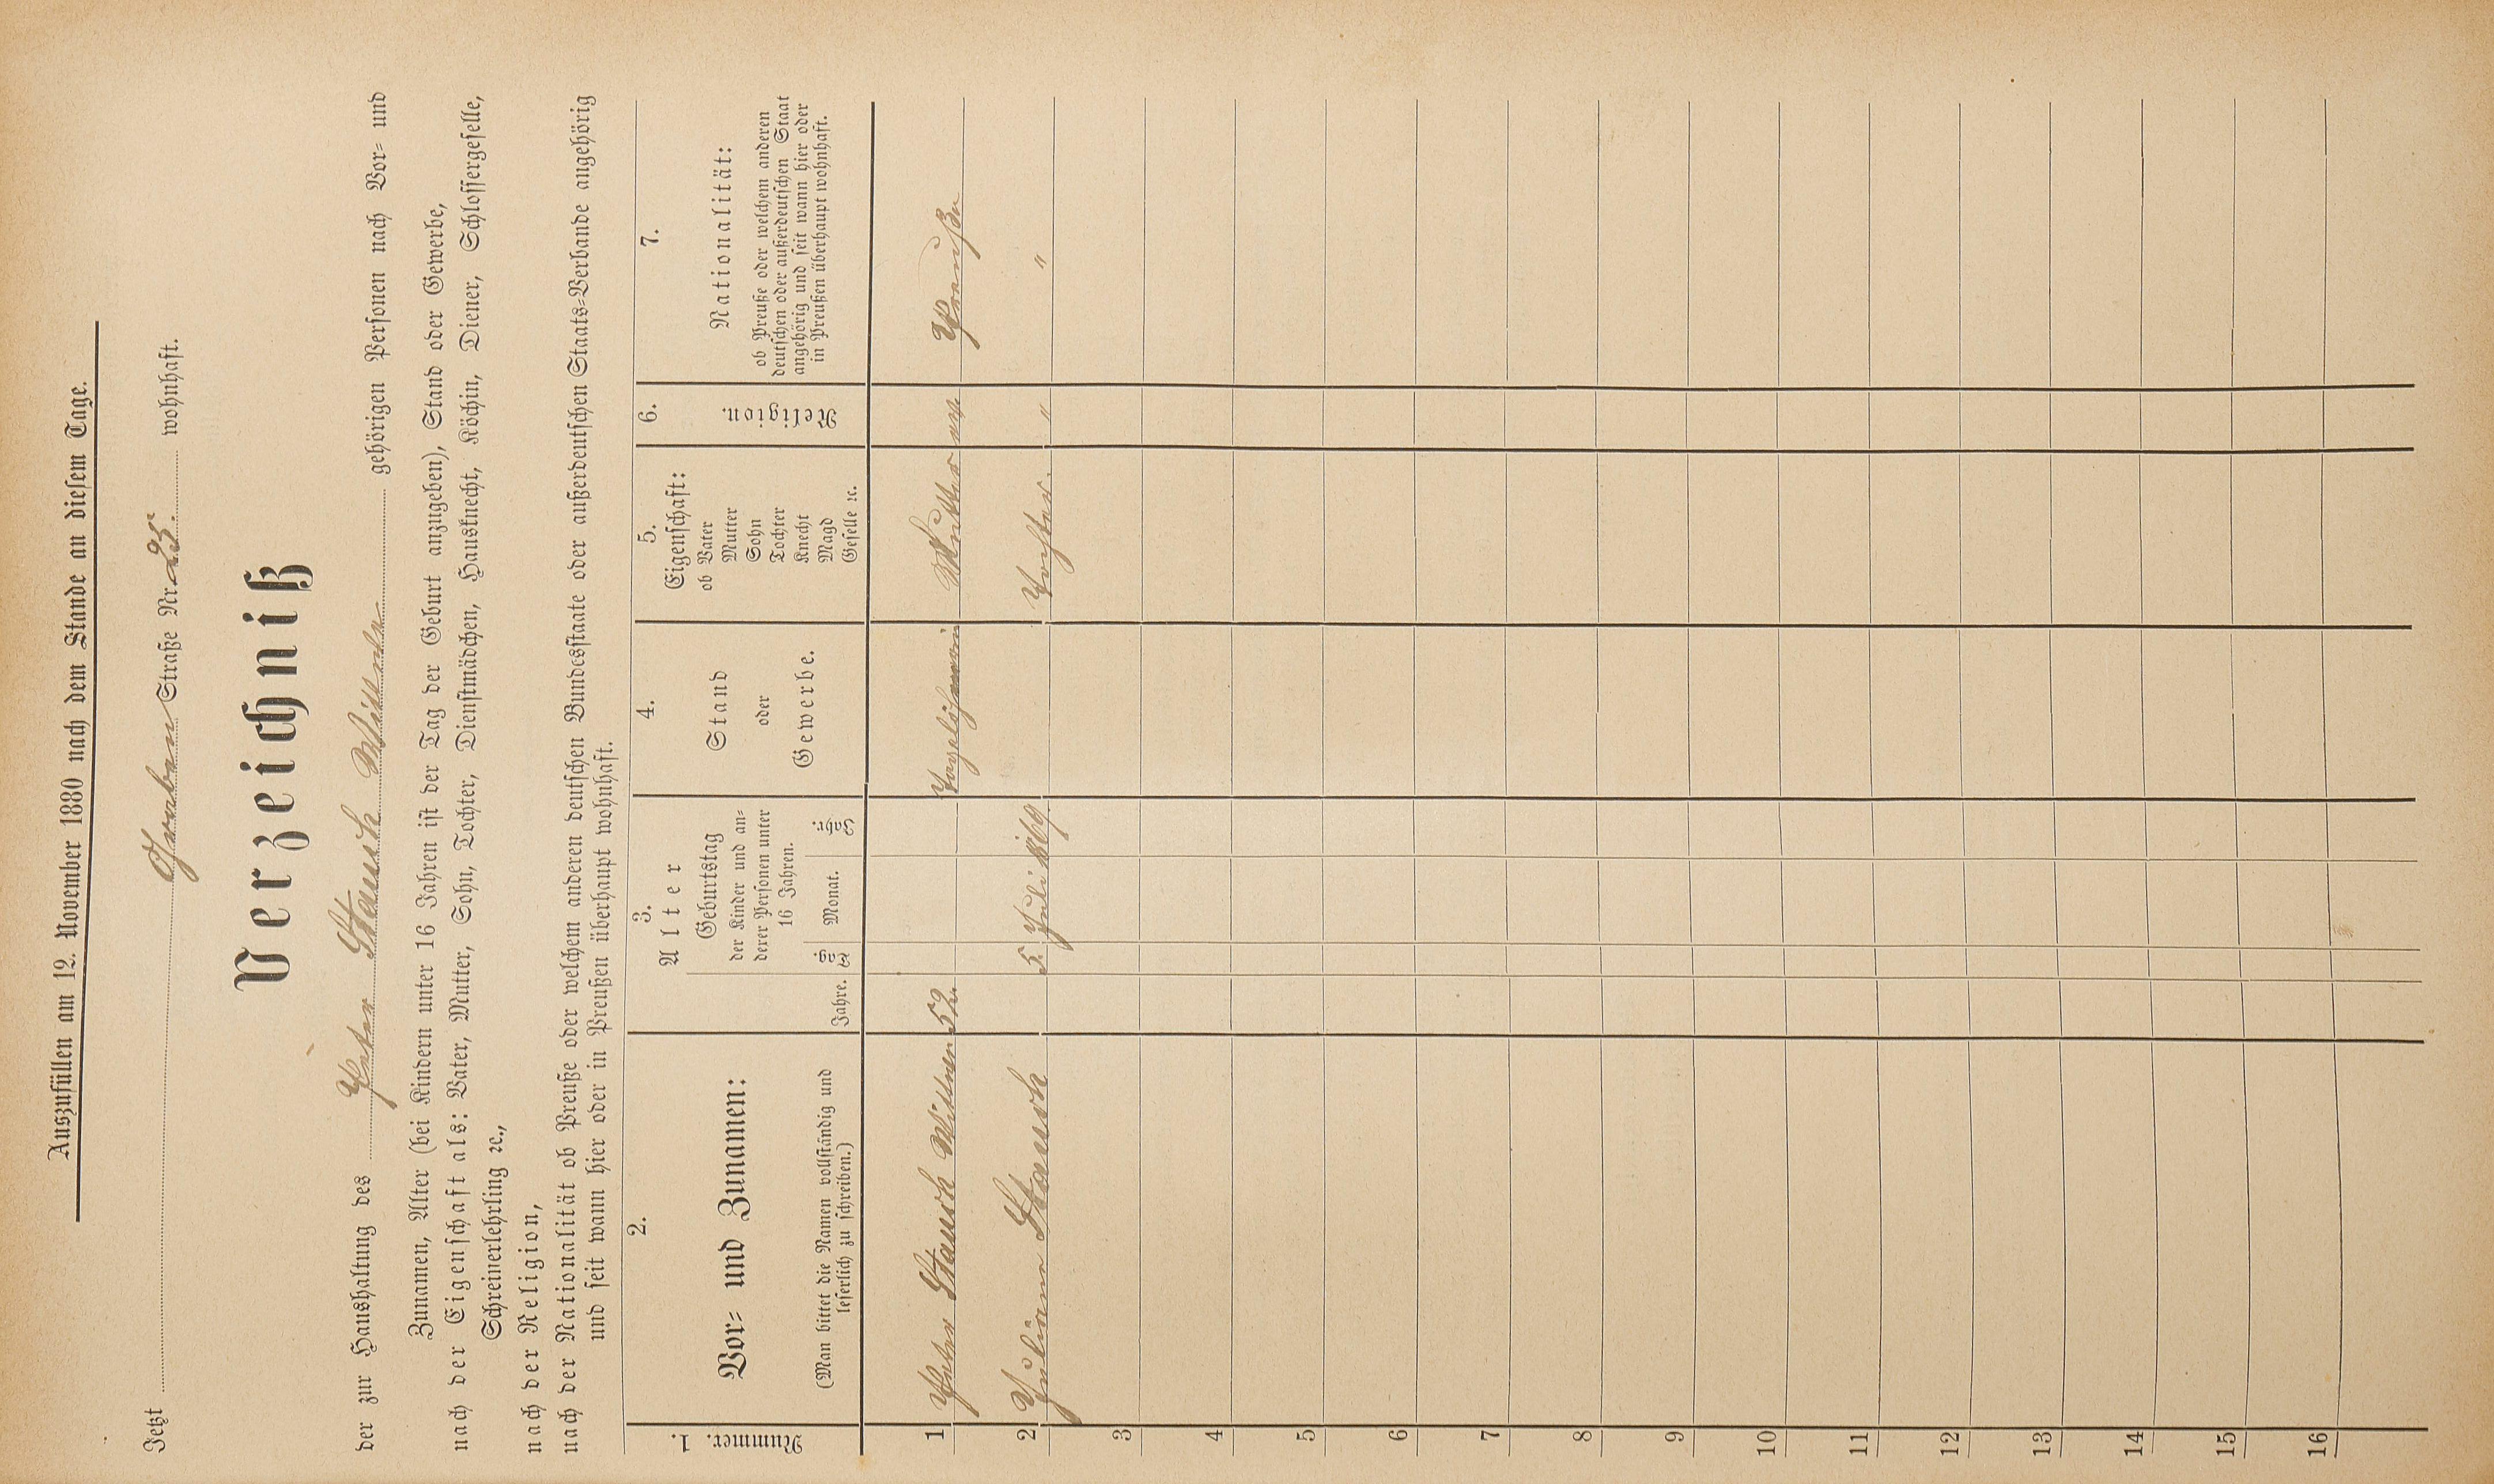 Auszufüllen am 12. November 1880 nach dem Stande an diesem Tage.
Jetzt Graben Straße Nr. 25. wohnhaft.
Verzeichniß
der zur Haushaltung des Peter Stauch Wittwe gehörigen Personen nach Vor- und
Zunamen, Alter (bei Kindern unter 16 Jahren ist der Tag der Geburt anzugeben), Stand oder Gewerbe,
nach der Eigenschaft als: Vater, Mutter, Sohn, Tochter, Dienstmädchen, Hausknecht, Köchin, Diener, Schlossergeselle,
Schreinerlehrling ꝛc.,
nach der Religion,
nach der Nationalität ob Preuße oder welchem anderen deutschen Bundesstaate oder außerdeutschen Staats-Verbande angehörig
und seit wann hier oder in Preußen überhaupt wohnhaft.
Nummer. 1.
2.
Vor- und Zunamen:
(Man bittet die Namen vollständig und
leserlich zu schreiben.)
3.
Alter
Geburtstag
der Kinder und an-
derer Personen unter
16 Jahren.
Jahre. Tag. Monat. Jahr.
4.
Stand
oder
Gewerbe.
5.
Eigenschaft:
ob Vater
Mutter
Sohn
Tochter
Knecht
Magd
Geselle ꝛc.
6.
Religion.
7.
Nationalität:
ob Preuße oder welchem anderen
deutschen oder außerdeutschen Staat
angehörig und seit wann hier oder
in Preußen überhaupt wohnhaft.
1 Peter Stauch Wittwe 52 Mutter ev Preuße
2 Juliane Stauch 5. Juli 1869 Tochter. " "
3
4
5
6
7
8
9
10
11
12
13
14
15
16